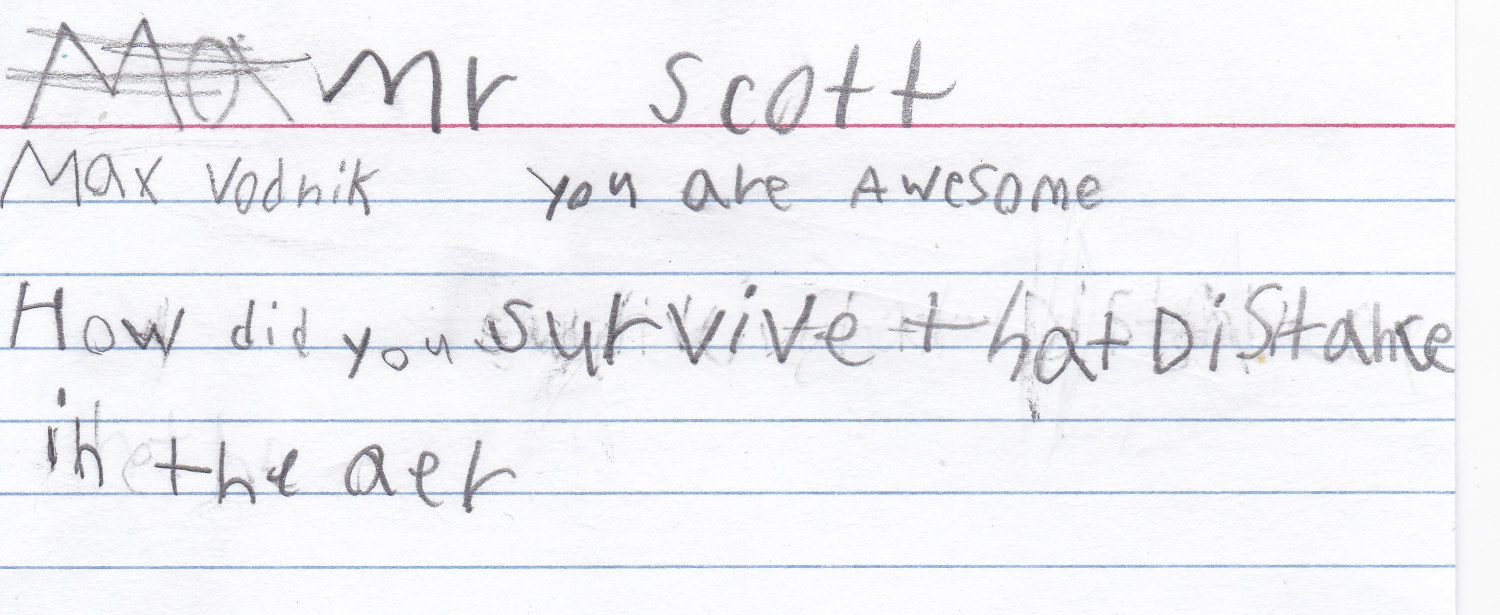 Mr Scott
Max Vodnik you are Awesome
How did you survive that Distance
in the aer